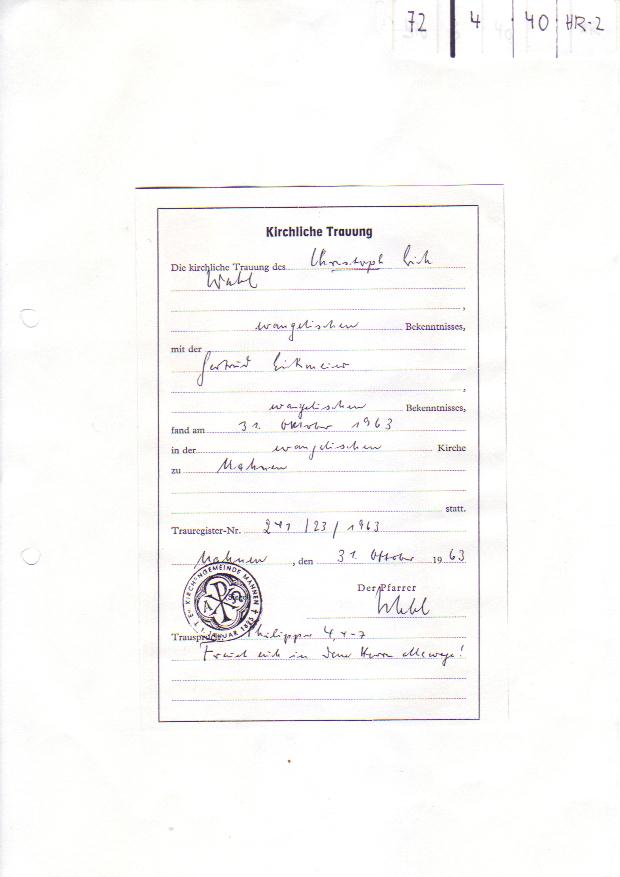 72 4 40 HR-2
Kirchliche Trauung
Die kirchliche Trauung des Christoph Erich
Wahl
,
evangelischen Bekenntnisses,
mit der
Gertrud
,
evangelischen Bekenntnisses,
fand am 31. Oktober 1963
in der evangelischen Kirche
zu Mahnen
statt.
Trauregister-Nr. 241/23/1963
Mahnen, den 31. Oktober 1963
Der Pfarrer
EV. KIRCHENGEMEINDE MAHNEN
Trauspruch: Philipper 4, 4-7
Freuet euch in dem Herrn allewege!